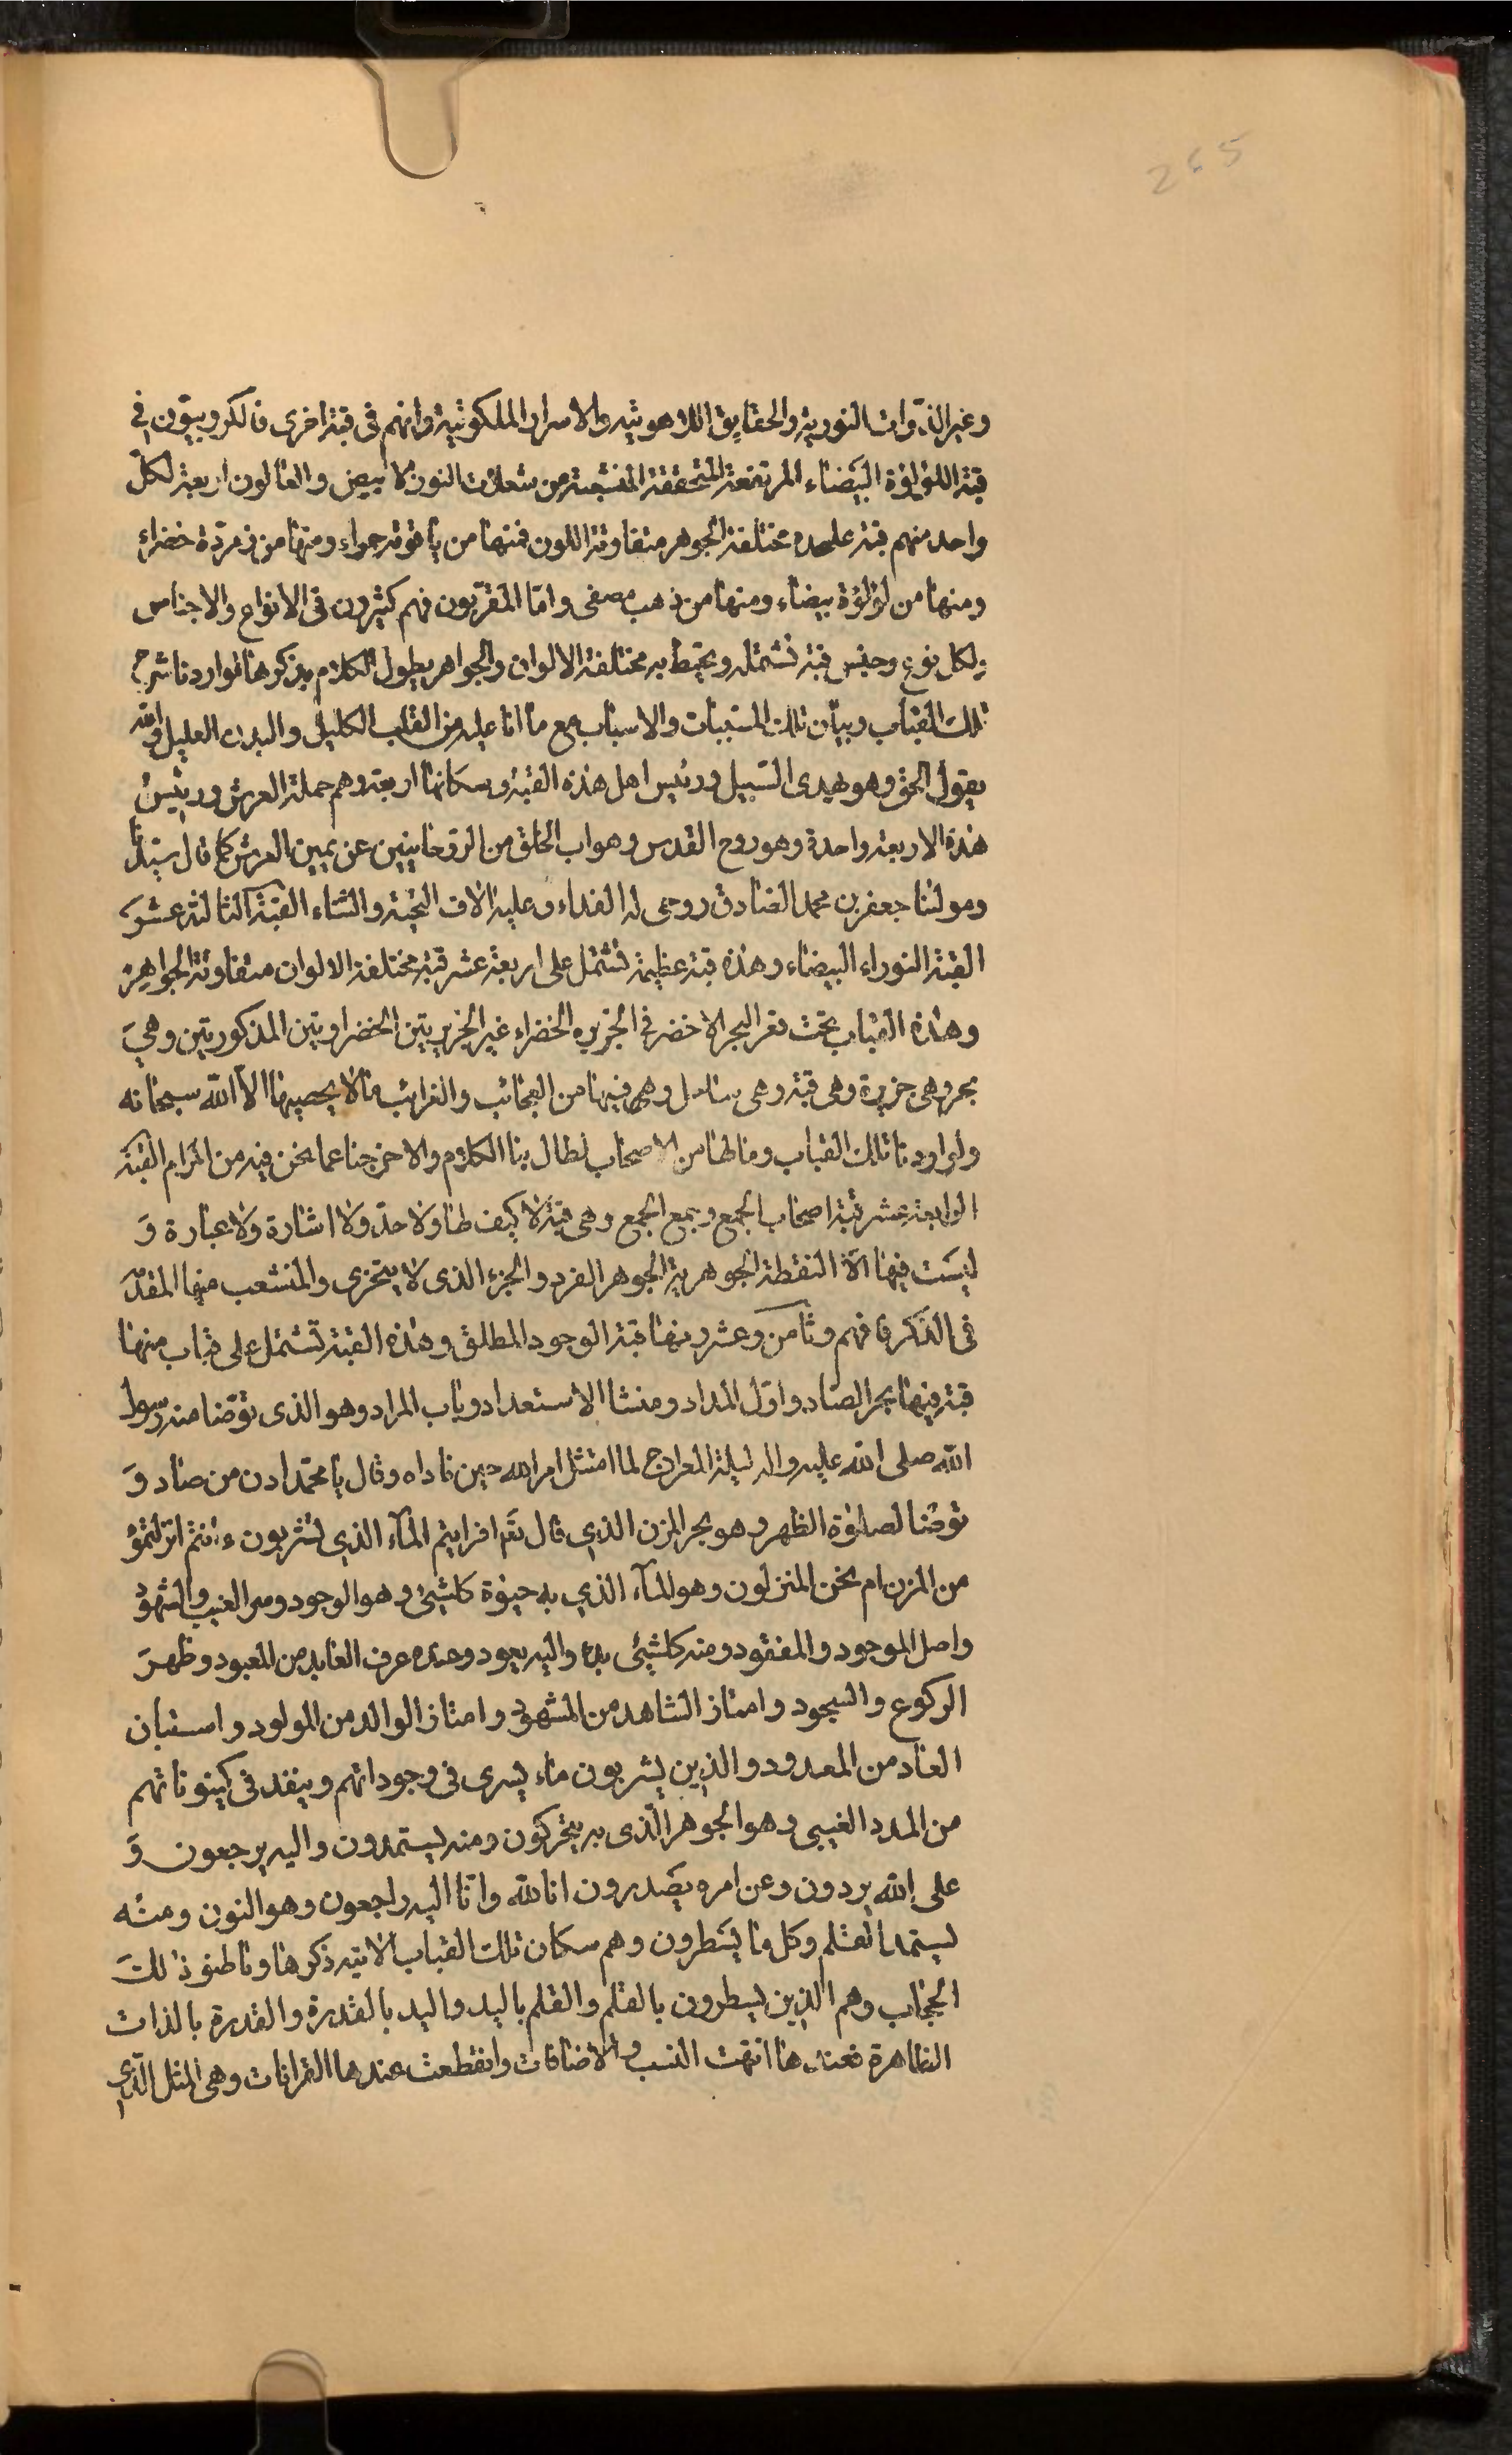 265
وغير الذّوات النورية والحقايق اللاهوتيه والاسرار الملكوتية وانهم فى قبة اخرى فالكروبيّون فى
قبة اللؤلؤة البيَضاء المرتفعة المتحققة من شعلات النور الابيض والعالون اربعة لكلّ
واحد منهم قبة عليحده مختلفة الجوهر متفاوتة اللون فمنها من ياقوتة حمراء ومنها من زمرّدة خضراء
ومنها من لؤلؤة بيضاء ومنها من ذهب مصفى وامّا المقرّبون فهم كثيرون فى الانواع والاجناس
ولكل نوع وجنس قبة تشتمله ويحيط به مختلفة الالوان والجواهر يطول الكلام بذكرها لواردنا شرح
تلك القباب وبيان تلك المسَببات والاسباب مع ما انا عليه من القلب الكليل والبدن العليل والله
يقول الحق وهو يهدى السّبيل ورئيس اهل هذه القبة وسكانها اربعة وهم حملة العرش ورئيسُ
هذه الاربعة واحدة وهو روح القدس وهو اب الخلق من الروحانيين عن يمين العرش كما قال سيّدنا
ومولٰنا جعفر بن محمد الصادق روحى له الفداء وعليه الاف التحيّة والثناء القبّة الثالثة عشرَ
القبة النوراء البيضاء وهذه قبة عظيمة تشتمل على اربعة عشر قبة مختلفة الالوان متفاوتة الجواهر
وهذه القباب تحت قعر البحر الاخضر فى الجزيره الخضراء غير الجزيريتين الخضراويتين المذكوريتين وهىَ
بحر وهى جزيرة وهى قبة وهى ساحل وهى فيها من العجائب والغرائب ما لا يحصيها الا الله سبحانه
ولو اردنا تلك القباب وما لها من الاصحاب لطال بنا الكلام ولاخرجنا عما نحن فيه من المرام القبّة
الرابعة عشر قبة اصحاب الجمع وجمع الجمع وهى قبّة لا كيف لها ولا حدّ ولا اشارة ولا عبارة وَ
ليسَت فيها الّا النقطة الجوهرية الجوهر الفرد والجزء الذى لا يتجزى والمنشعب منها المقدّم
فى الذكر فافهم وثامن وعشرينها قبة الوجود المطلق وهذه القبة تشتمل على قباب منها
قبة فيها بحر الصاد واوّل المداد ومنشا الاستعداد وباب المراد وهو الذى توضّا منه رسول
الله صلى الله عليه واله ليلة المعراج لما امتثل امر الله حين ناداه وقال يا محمّد ادن من صاد وَ
توضّا لصلوٰة الظهر وهو بحر المزن الذى قال تعٰ افرايتم المآء الذي تشربون ءانتم انزلتموُ
من المزن ام نحن المنزلون وهو المآء الذي به حيوٰة كلشيئ وهو الوجود وسر الغيب والشهود
واصل الموجود والمفقود ومنه كلشيئ بدء واليه يعود وعنده عرف العابد من المعبود وظهرَ
الركوع والسجود وامتاز الشاهد من المشهود وامتاز الوالد من المولود واستبان
العاد من المعدود والذين يشربون ماء يسرى فى وجوداتهم وينفد فى كينوناتهم
من المدد الغيبى وهو الجوهر الّذى به يتحركون ومنه يستمدون واليه يرجعون وَ
على الله يردون وعن امره يصَدرون انا لله وانّا اليه راجعون وهو النون ومنه
ليستمد القلم وكل ما يسَطرون وهم سكان تلك القباب الاتيه ذكرها وقاطنو ذٰلكَ
الحجاب وهم الذين يسطرون بالقلم والقلم باليد واليد بالقدرة والقدرة بالذات
الظاهرة فعندها انتهت النسب والاضافات وانقطعت عندها القرانات وهى المثل الّذي